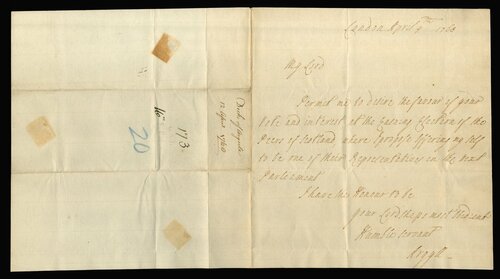 London April 1760
My Lord
Permit me to desire the favour of your
Vote and interest at the ensuing Election of the
Peers of Scotland where I propose offering my self
to be one of their Representatives in the next
Parliament
I have the Honour to be
your Lordships most Obedient
Humble servant
Argyll
Duke of Argyle
12 Apr. 1760
173
20